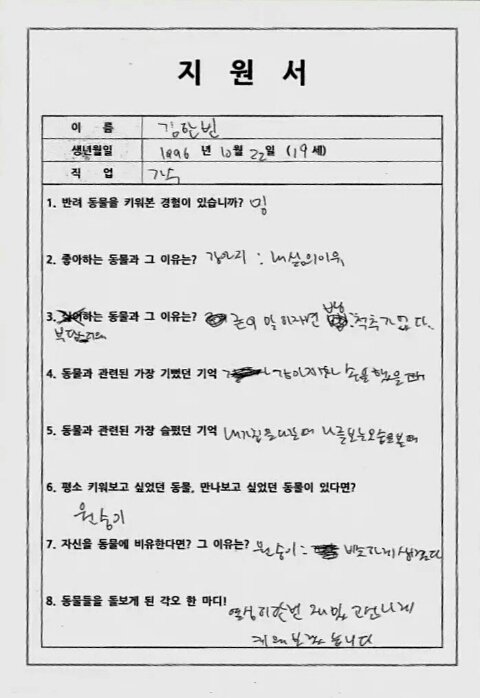 지 원 서
이 름 김한빈
생년월일 1996 년 10월 22일 (19세)
직 업 가수
1. 반려 동물을 키워본 경험이 있습니까?
2. 좋아하는 동물과 그 이유는? 강아지 : 내 삶의 이유
3. 싫어하는 동물과 그 이유는? 뱀 척추가 없다.
4. 동물과 관련된 가장 기뻤던 기억 강아지가 손을 했을 때
5. 동물과 관련된 가장 슬펐던 기억 내가 집을 나갈 때 나를 보는 모습을 볼 때
6. 평소 키워보고 싶었던 동물, 만나보고 싶었던 동물이 있다면?
원숭이
7. 자신을 동물에 비유한다면? 그 이유는? 원숭이 : 비슷하게 생겼다
8. 동물들을 돌보게 된 각오 한 마디!
열심히 한번 재밌고 신나게
키워보겠습니다